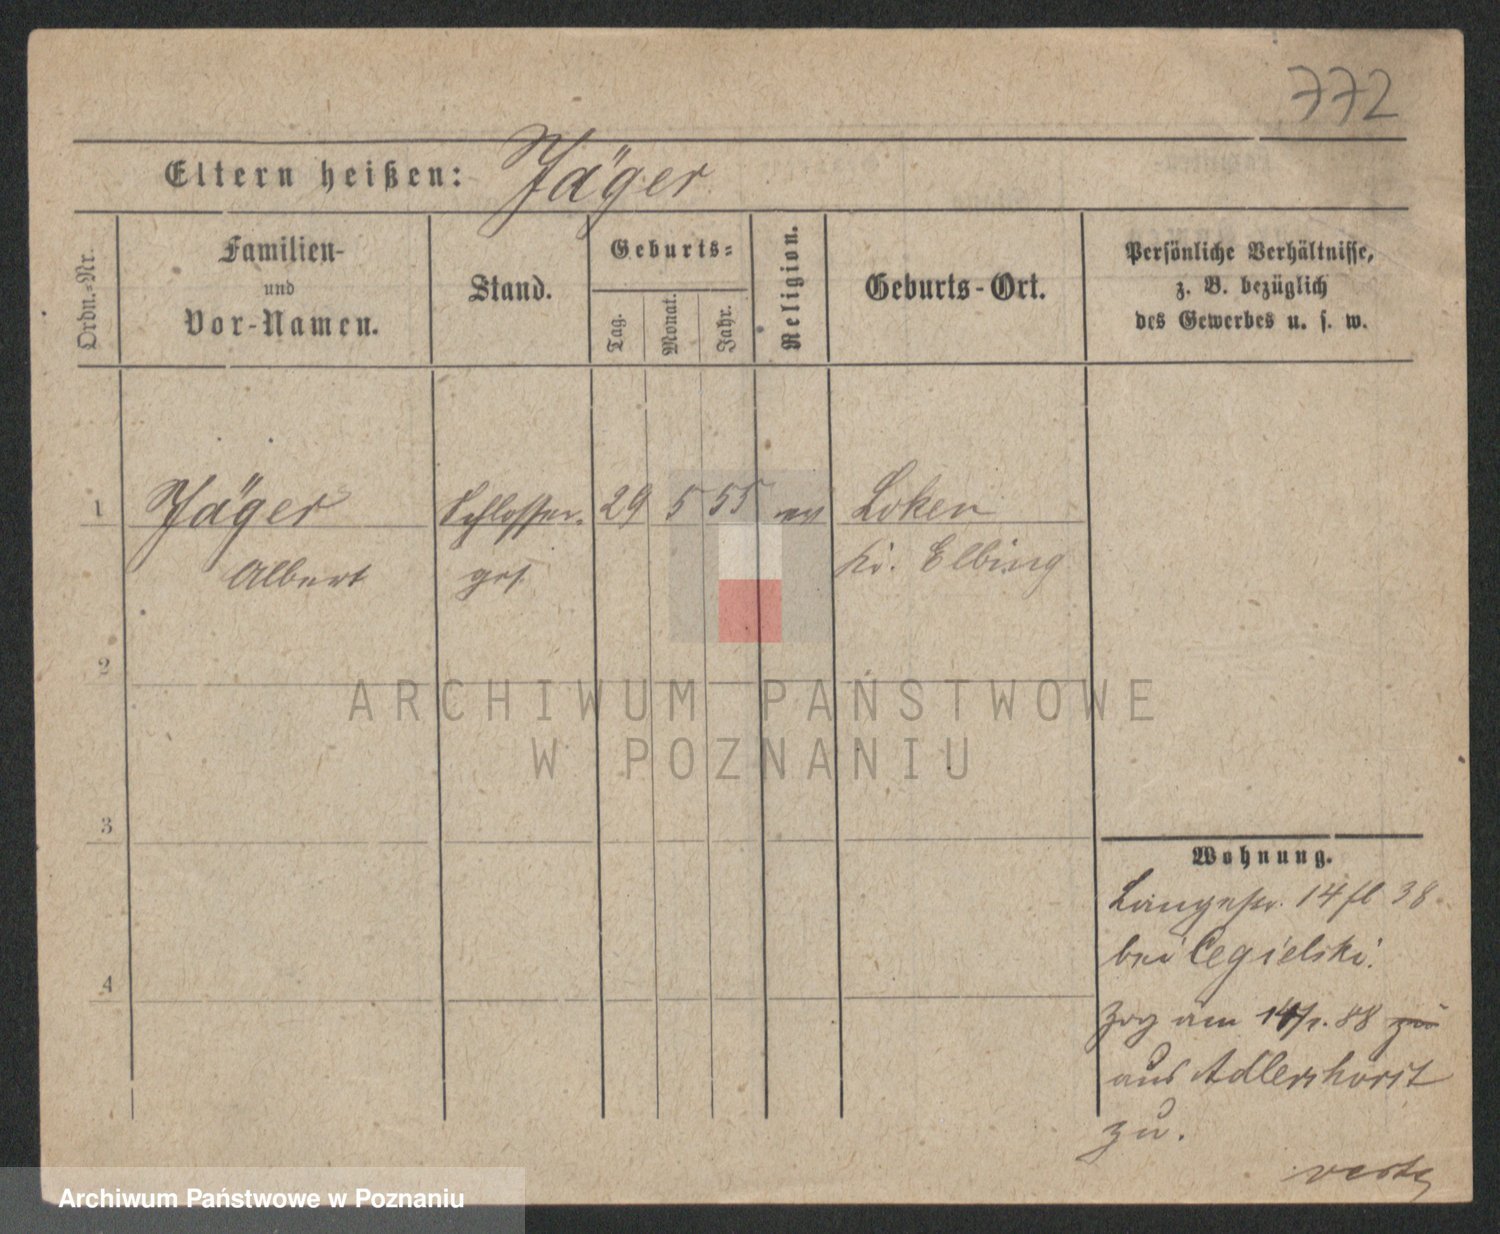 772
Eltern heißen: Jäger
Ordn.-Nr.
Familien-
und
Vor-Namen.
Stand.
Geburts-
Tag.
Monat.
Jahr.
Religion.
Geburts-Ort.
Persönliche Verhältnisse,
z. B. bezüglich
des Gewerbes u. s. w.
1 Jäger Schlosser- 29 5 55 ev Loken
Albert ges. Kr. Elbing
2
ARCHIWUM PAŃSTWOWE
W POZNANIU
3
Wohnung.
Langestr. 14 38
bei Cegielski.
4
zog am 88 zu
aus Adlershorst
zu.
Archiwum Państwowe w Poznaniu